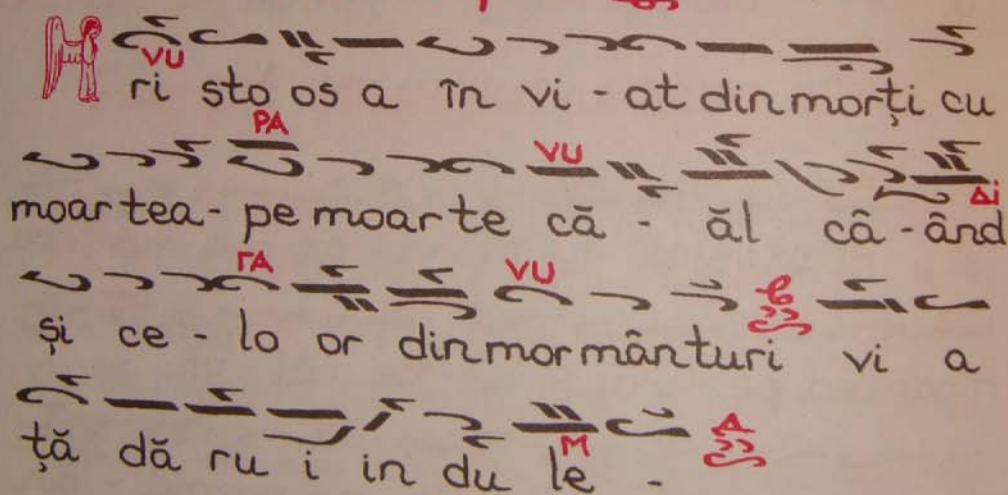 VU
Hri sto os a în vi - at din morți cu
PA VU
moar tea - pe moar te că - ăl câ - ând
Δi
ΓA VU
și ce - lo or din mor mân turi vi a
ță dă ru i in du le -
M